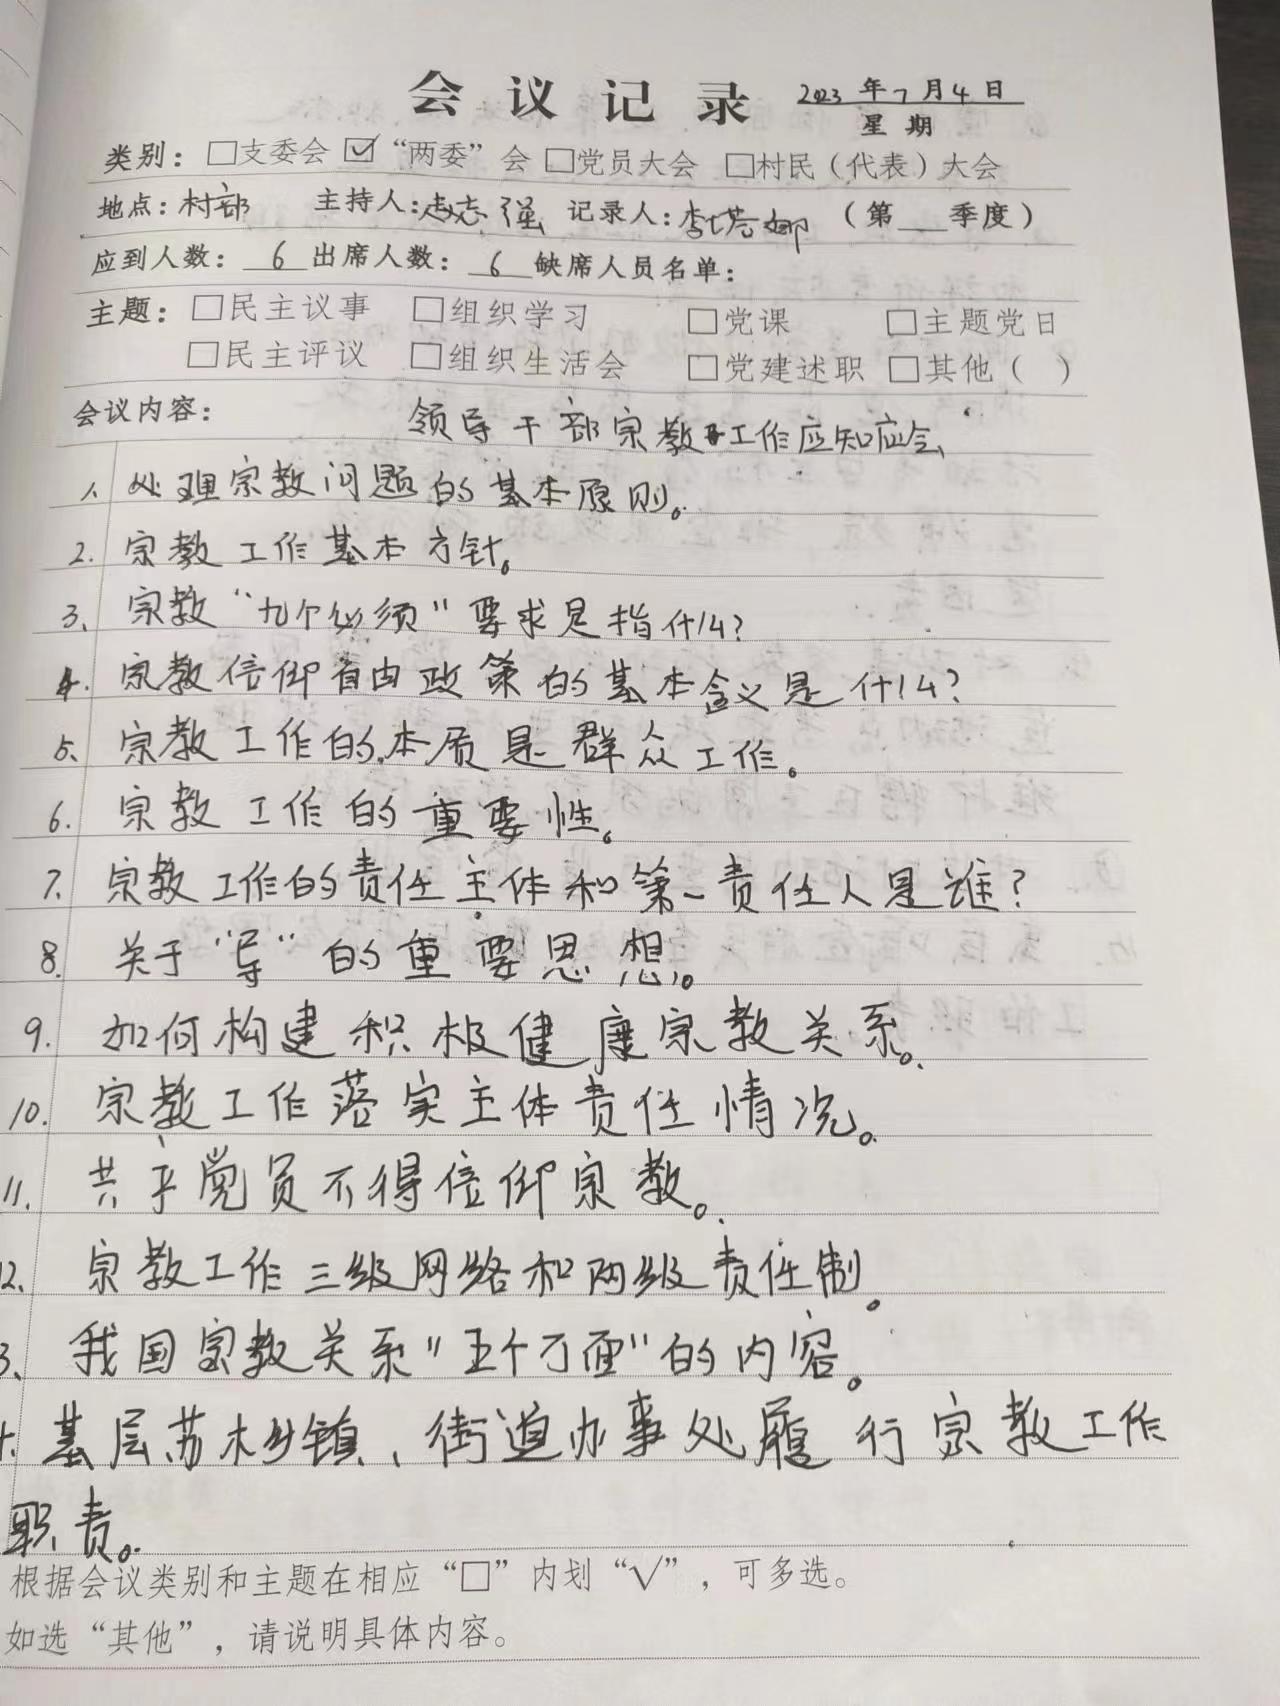 会议记录 2023年7月4日
星期
类别：□支委会 ☑“两委”会 □党员大会 □村民（代表）大会
地点：村部 主持人：赵志强 记录人：李塔娜 （第 季度）
应到人数：6 出席人数：6 缺席人员名单：
主题：□民主议事 □组织学习 □党课 □主题党日
□民主评议 □组织生活会 □党建述职 □其他（ ）
会议内容： 领导干部宗教工作应知应会
1. 处理宗教问题的基本原则。
2. 宗教工作基本方针。
3. 宗教“九个必须”要求是指什么？
4. 宗教信仰自由政策的基本含义是什么？
5. 宗教工作的本质是群众工作。
6. 宗教工作的重要性。
7. 宗教工作的责任主体和第一责任人是谁？
8. 关于“导”的重要思想。
9. 如何构建积极健康宗教关系。
10. 宗教工作落实主体责任情况。
11. 共产党员不得信仰宗教。
2. 宗教工作三级网络和两级责任制。
3. 我国宗教关系“五个方面”的内容。
基层苏木乡镇、街道办事处履行宗教工作
职责。
根据会议类别和主题在相应“□”内划“√”，可多选。
如选“其他”，请说明具体内容。